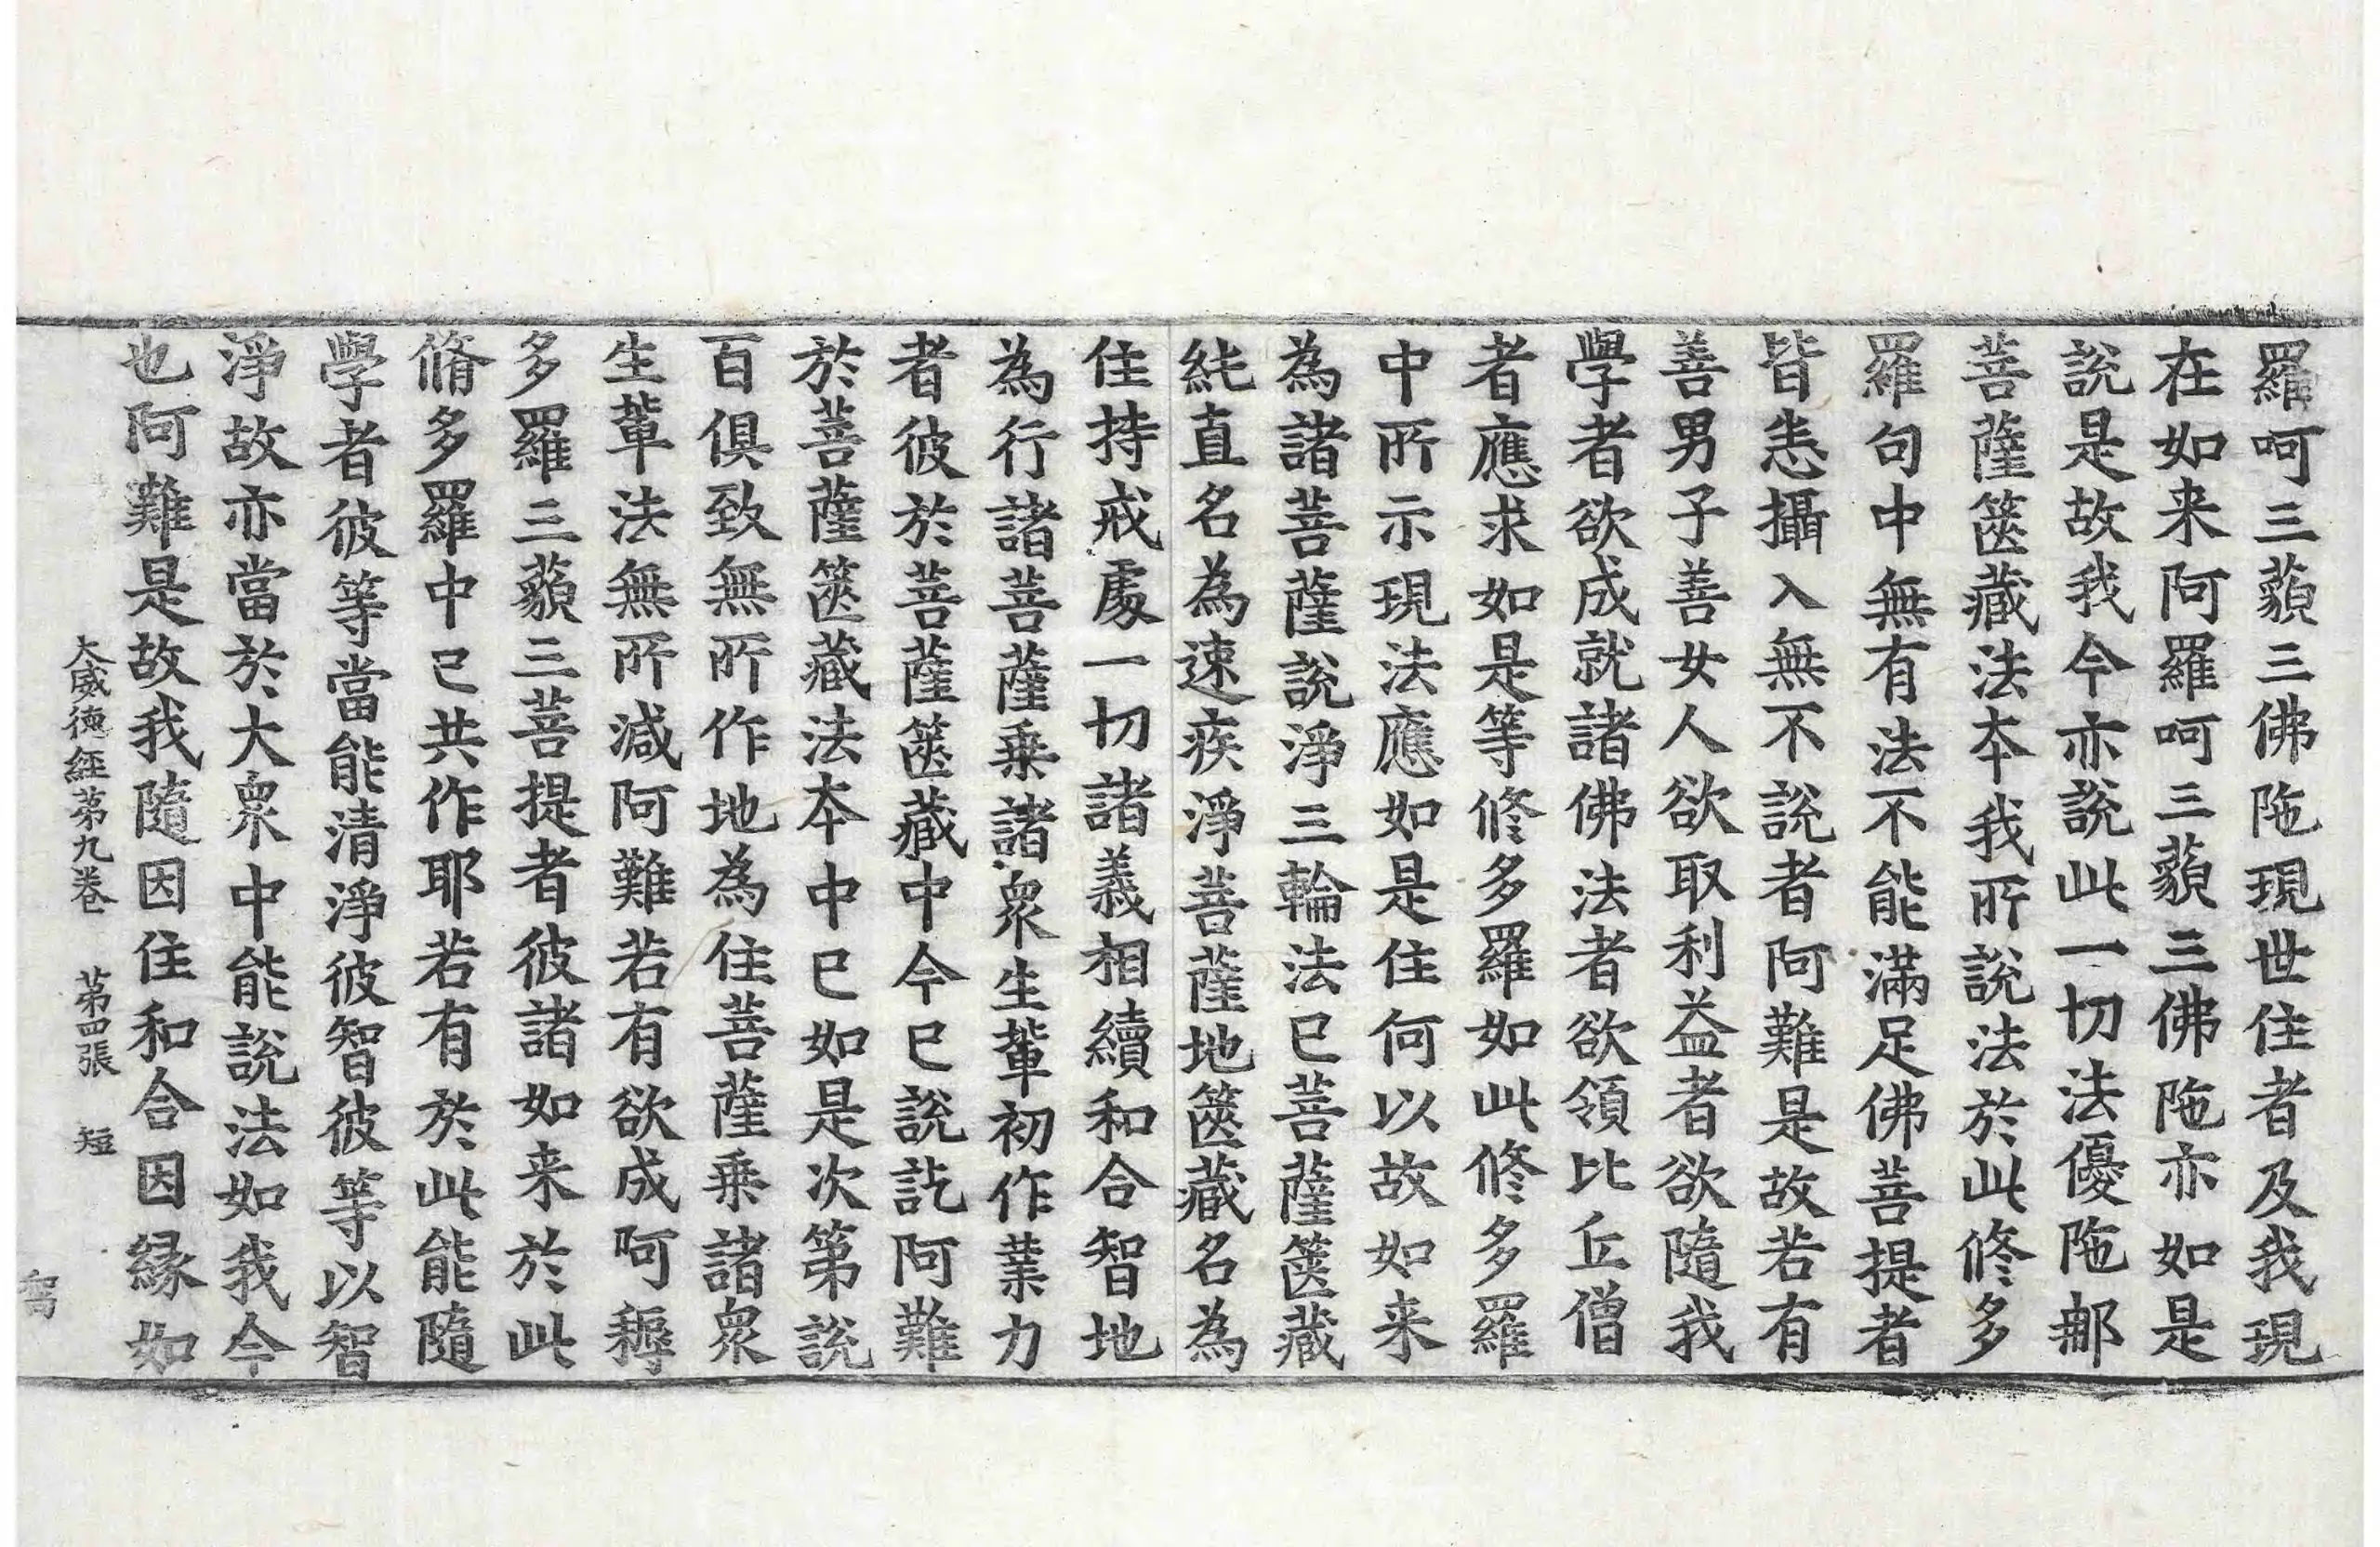 羅呵三藐三佛陁現世住者及我現
在如来阿羅呵三藐三佛陁亦如是
說是故我今亦說此一切法優陁那
菩薩篋藏法本我所說法於此修多
羅句中無有法不能滿足佛菩提者
皆悉攝入無不說者阿難是故若有
善男子善女人欲取利益者欲隨我
學者欲成就諸佛法者欲領比丘僧
者應求如是等修多羅如此修多羅
中所示現法應如是住何以故如来
為諸菩薩說淨三輪法已菩薩篋藏
純直名為速疾淨菩薩地篋藏名為
住持戒處一切諸義相續和合智地
為行諸菩薩乗諸衆生軰初作業力
者彼於菩薩篋藏中今已說訖阿難
於菩薩篋藏法本中已如是次第說
百俱致無所作地為住菩薩乗諸衆
生軰法無所減阿難若有欲成阿耨
多羅三藐三菩提者彼諸如来於此
脩多羅中已共作耶若有於此能隨
學者彼等當能清淨彼智彼等以智
淨故亦當於大衆中能說法如我今
也阿難是故我隨因住和合因緣如
大威德經第九卷　第四張　短